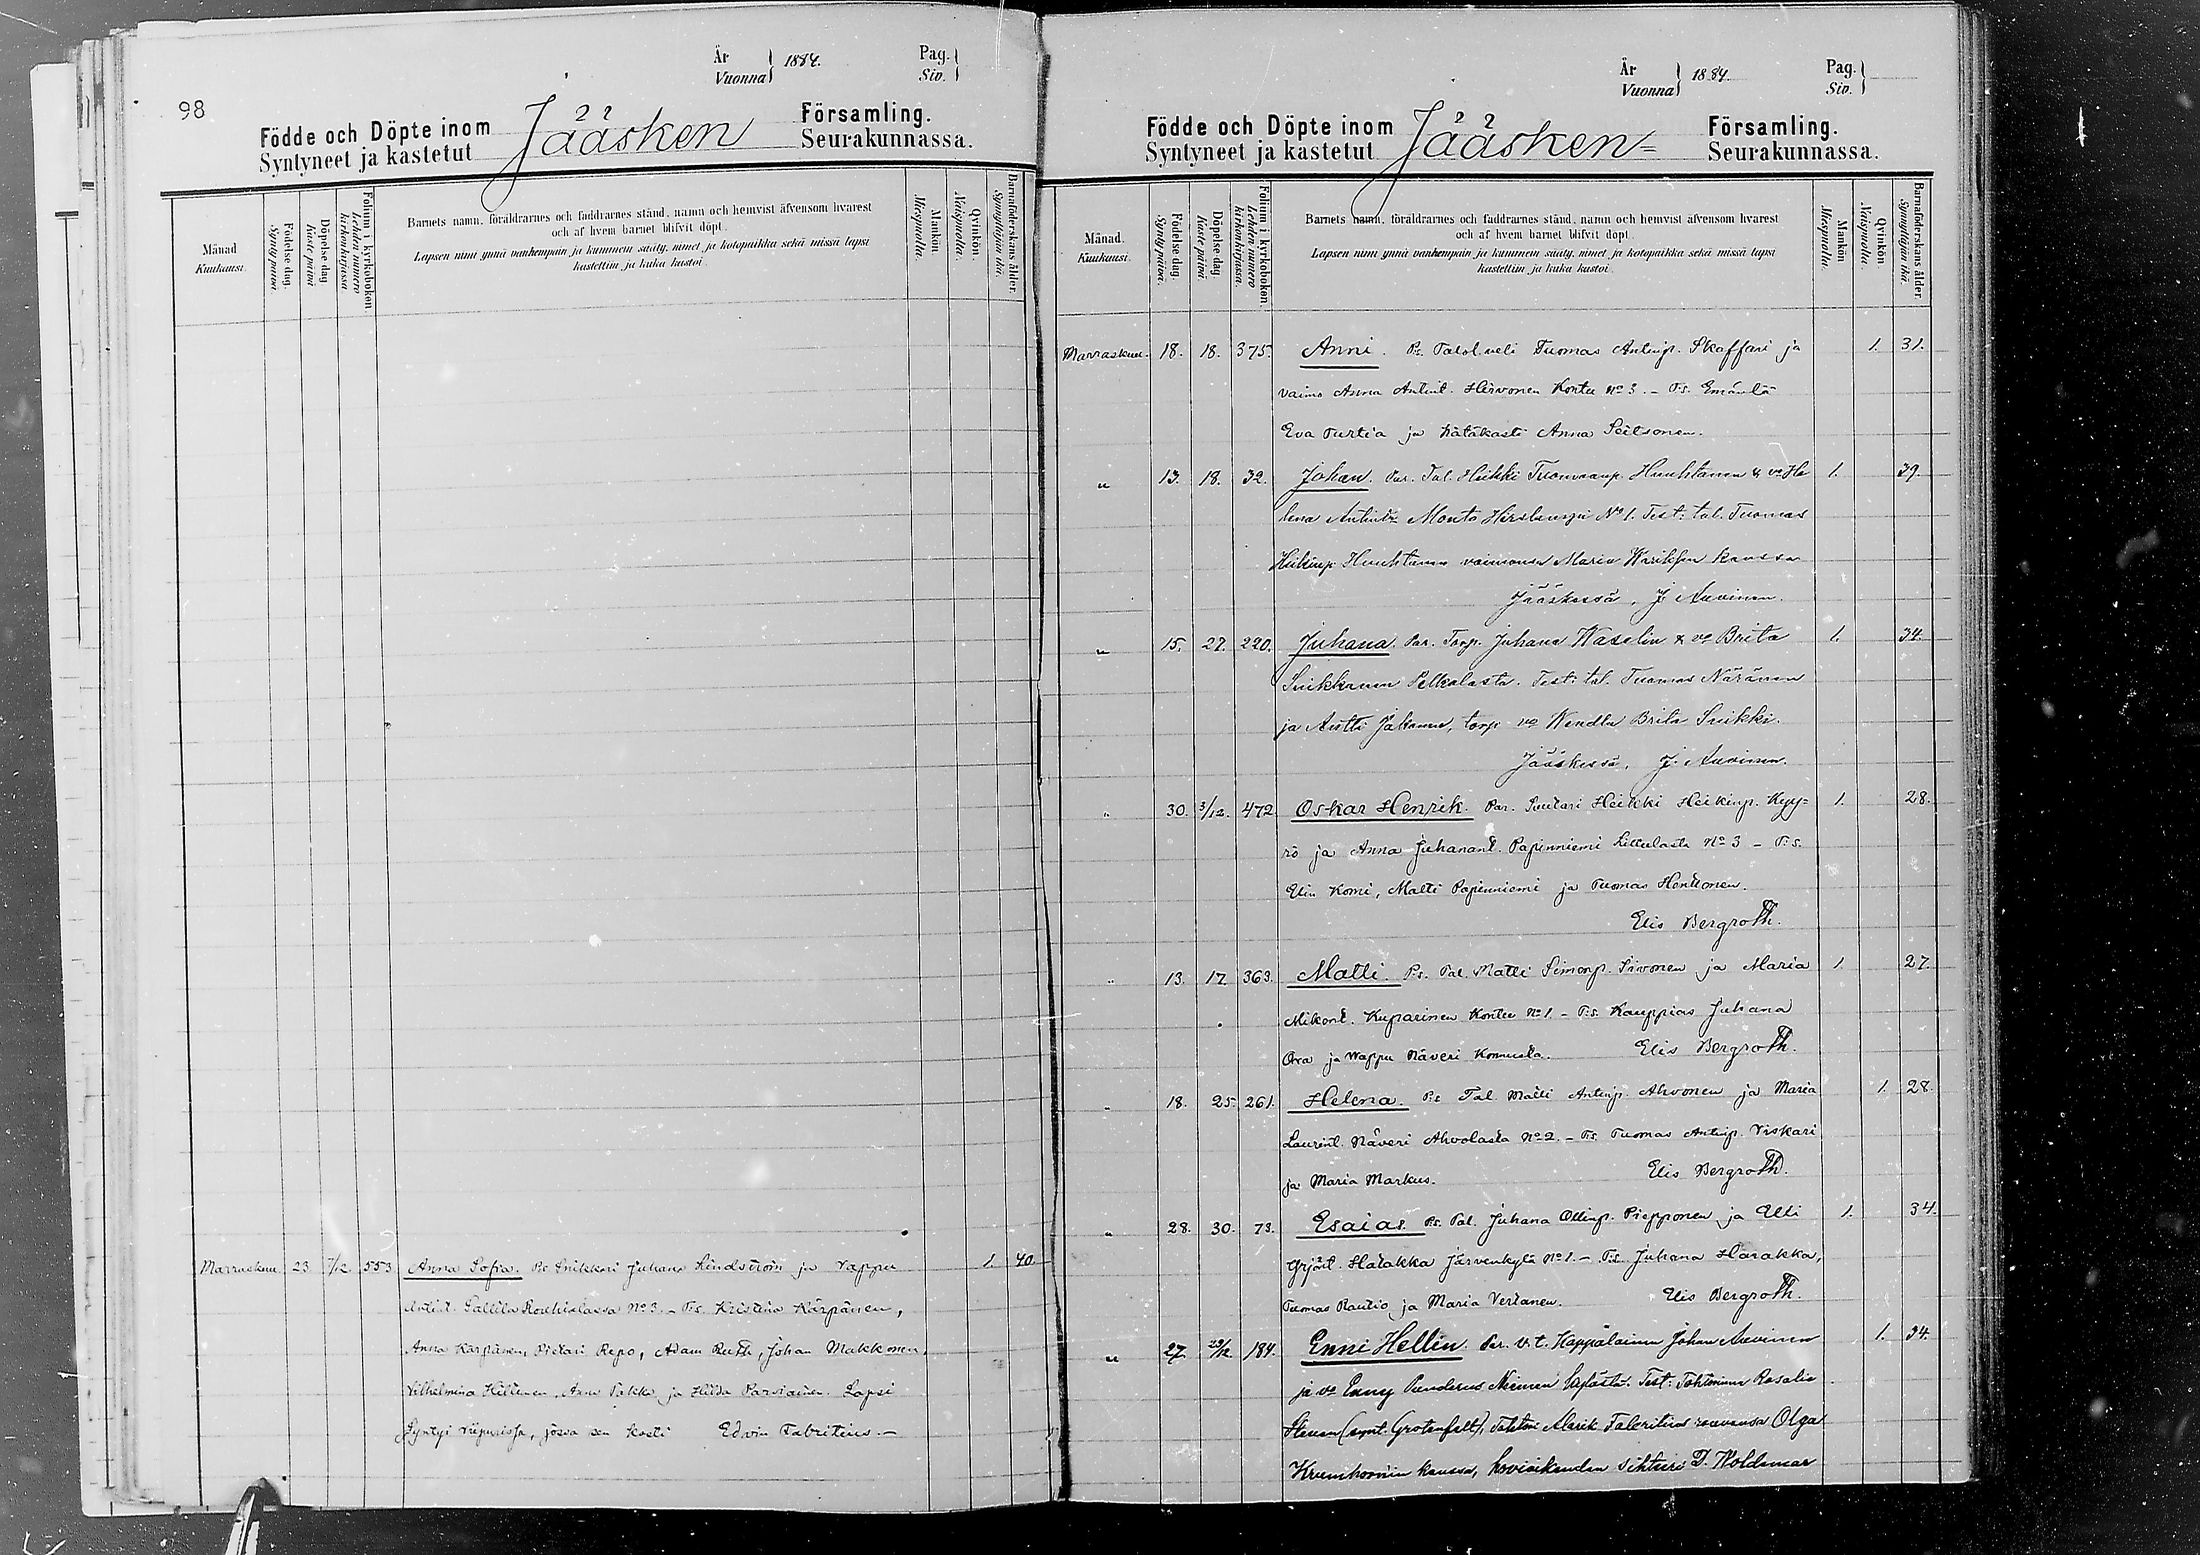 98
År
Vuonna } 1884.
Pag.
Siv. }
Födde och Döpte inom Jääsken Församling.
Syntyneet ja kastetut Seurakunnassa.
Månad
Kuukausi.
Födelse dag.
Syntypäivä
Döpelse dag
Kastepäivä
Folium i kyrkoboken.
Lehden numero kirkonkirjassa
Barnets namn, föräldrarnes och faddrarnes stånd, namn och hemvist äfvensom hvarest
och af hvem barnet blifvit döpt.
Lapsen nimi ynnä vanhempain ja kummein sääty, nimet ja kotopaikka sekä missä lapsi
kastettiin ja kuka kastoi.
Mankön.
Miespuolia.
Qvinkön.
Naispuolia.
Barnaföderskans ålder.
Synnyttäjän ikä.
Marraskuu 23 7/12 553 Anna Sofia. Ps Snikkari Juhana Lindström ja Vappu 1. 40.
Antint. Sallila Rouhialassa No 3. – Ts. Kristina Kärpänen,
Anna Kärpänen, Pietari Repo, Adam Ruth, Johan Makkonen,
Vilhelmina Hiltunen, Anna Pakka ja Hilda Parviainen. Lapsi
Syntyi Viipurissa, jossa sen kasti Edvin Fabritius. –
År
Vuonna } 1884.
Pag.
Siv. }
Födde och Döpte inom Jääsken Församling.
Syntyneet ja kastetut Seurakunnassa.
Månad.
Kuukausi.
Födelse dag.
Syntypäivä.
Döpelse dag.
Kastepäivä.
Folium i kyrkoboken.
Lehden numero kirkonkirjassa.
Barnets namn, föräldrarnes och faddrarnes stånd, namn och hemvist äfvensom hvarest
och af hvem barnet blifvit döpt.
Lapsen nimi ynnä vanhempain ja kummein sääty, nimet ja kotopaikka sekä missä lapsi
kastettiin ja kuka kastoi.
Mankön
Miespuolia.
Qvinkön.
Naispuolia.
Barnaföderskans ålder.
Synnyttäjän ikä.
Marraskuu. 18. 18. 375. Anni. Ps. Talol. veli Tuomas Antinp. Skaffari ja 1. 31.
vaimo Anna Antint. Hirvonen Kontu No 3. – Ts. Emäntä
Eva Turtia ja hätäkasti Anna Seitsonen.
" 13. 18. 32. Johan. Par. Tal. Heikki Tuomaanp. Huuhtanen & vo He 1. 39.
lena Antintr Monto Hirslampi No 1. Test: tal. Tuomas
Heikinp Huuhtanen vaimonsa Maria kanssa
Jääskessä, J. Auvinen.
" 15. 27. 220. Juhana. Par. Torp. Juhana Waselin & vo Brita 1. 34.
Suikkanen Pelkolasta. Test: tal. Tuomas Näränen
ja Antti Jakonen, torp. vo Wendla Brita Suikki.
Jääskessä, J. Auvinen.
" 30. 3/12. 472 Oskar Henrik. Par. Suutari Heikki Heikinp. Kyy= 1. 28.
rö ja Anna Juhanant. Papinniemi Littulasta No 3 – Ts.
Elin Komi, Matti Papinniemi ja Tuomas Henttonen.
Elis Bergroth.
" 13. 17. 363. Matti. Ps. Tal. Matti Simonp. Sivonen ja Maria 1. 27.
Mikont. Kuparinen Kontu No 1. – Ts. Kauppias Juhana
Ora ja Wappu Näveri Konnusta. Elis Bergroth.
" 18. 25. 261. Helena. Ps Tal Matti Antinp. Ahvonen ja Maria 1. 28.
Laurint. Näveri Ahvolasta No 2. – Ts. Tuomas Antinp. Viskari
ja Maria Markus. Elis Bergroth.
" 28. 30. 73. Esaias. Ps. Tal. Juhana Ollinp. Piepponen ja Elli 1. 34.
Yrjönt. Harakka Järvenkylä No 1. – Ts. Juhana Harakka,
Tuomas Rautio ja Maria Vertanen. Elis Bergroth.
" 27. 29/12. 184. Enni Hellin. Par. V. t. Kappalainen Johan Auvinen 1. 34.
ja vo Enny Niemen kylästä. Test: Tohtorinna Rosalie
Steven (synt. Grotenfelt), tohtori Alarik Fabritius rouvansa Olga
Krumhornin kanssa, hovioikeuden sihteeri D. Woldemar